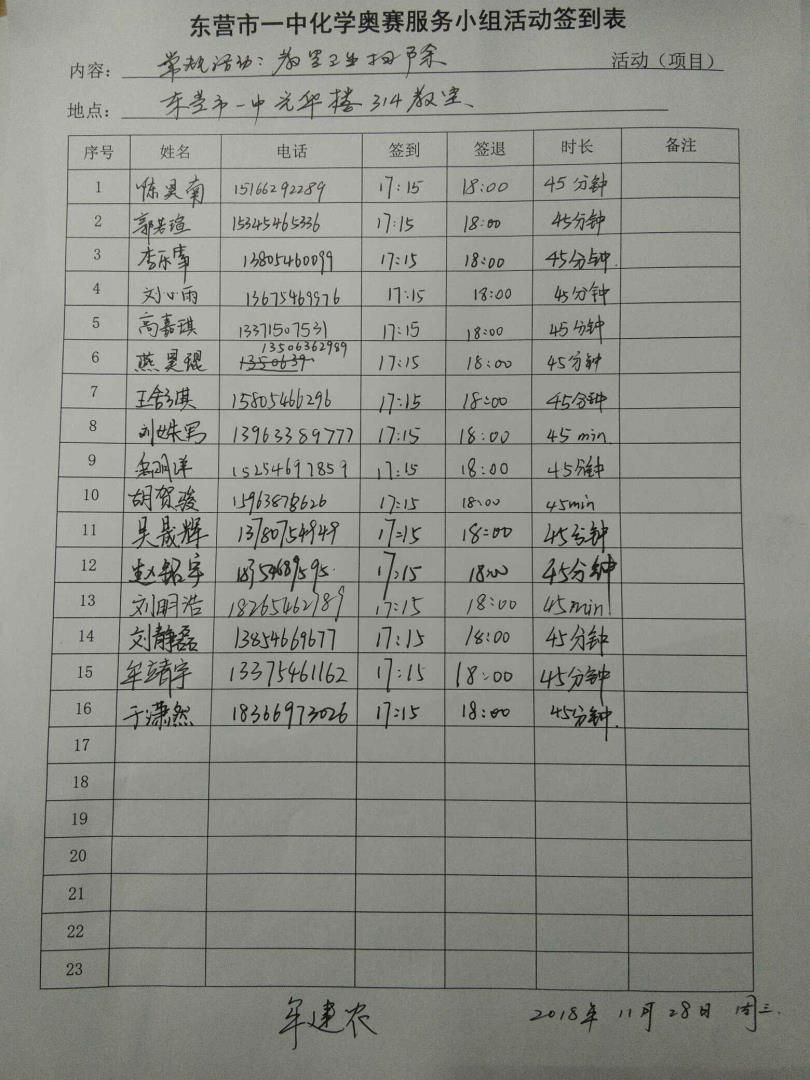 东营市一中化学奥赛服务小组活动签到表
内容：常规活动：教室卫生扫除 活动（项目）
地点：东营市一中光华楼314教室、
序号 姓名 电话 签到 签退 时长 备注
1 陈昊南 15166292289 17:15 18:00 45分钟
2 郭若瑄 15345465336 17:15 18:00 45分钟
3 李乐事 13805460099 17:15 18:00 45分钟.
4 刘小雨 13675469976 17:15 18:00 45分钟
5 高嘉琪 13371507531 17:15 18:00 45分钟
13506362989
6 燕昊琨 1350639 17:15 18:00 45分钟
7 王舒淇 15805466296 17:15 18:00 45分钟
8 刘姝男 13963389777 17:15 18:00 45 min.
9 明洋 15254697859 17:15 18:00 45分钟
10 胡贺骏 15963878626 17:15 18:00 45min
11 吴晟辉 13780754949 17:15 18:00 45分钟
12 赵铭宇 18754689595. 17:15 18:00 45分钟
13 刘明浩 18265462789 17:15 18:00 45min
14 刘静磊 13854669677 17:15 18:00 45分钟
15 牟靖宇 13375461162 17:15 18:00 45分钟
16 于潇然 18366973026 17:15 18:00 45分钟.
17
18
19
20
21
22
23
牟建农 2018年11月28日 周三.